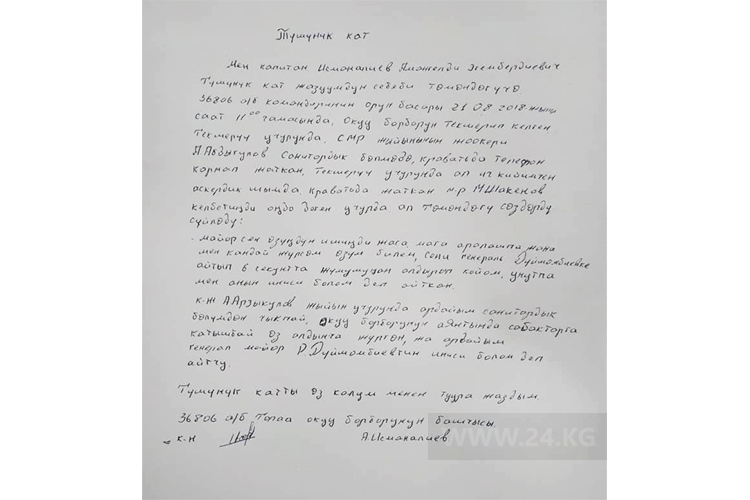 Түшүнүк кат
Мен капитан Исманалиев Амангелди Эгембердиевич
Түшүнүк кат жазуумдун себеби төмөндөгүчө
36806 а/б командиринин орун басары 21.08.2018 жылы
саат 11⁰⁰ чамасында, окуу борборун текшерип келген
текшерүү учурунда, СМР жыйынынын жоокери
А Абдыкулов Санитардык бөлмөдө, краватьда телефон
кармап жаткан, текшерүү учурунда ал ич кийимчен
аскердик шымда, краватьда жаткан м-р М Шакенов
келбетиңди оңдо деген учурда ал төмөндөгү сөздөрдү
сүйлөдү:
- майор сен өзүңдүн ишиңди жаса, мага аралашпа жана
мен кандай жүрсөм өзүм билем, сени генерал Дуйшөмбиевке
айтып 6 секундта жумушуңан алдырып коюм, унутпа
мен анын иниси болом деп айткан.
к-ж А Арзыкулов жыйын учурунда ардайым санитардык
бөлүмдөн чыкпай, окуу борборунун аянтында сабактарга
катышпай өз алдынча жүргөн, жа ардайым
генерал майор Р Дуйшөмбиевтин иниси болом деп
айтчу.
Түшүнүк катты өз колум менен туура жаздым.
36806 а/б Токаа окуу борборунун башчысы.
к-н
А.Исманалиев
WWW.24.KG